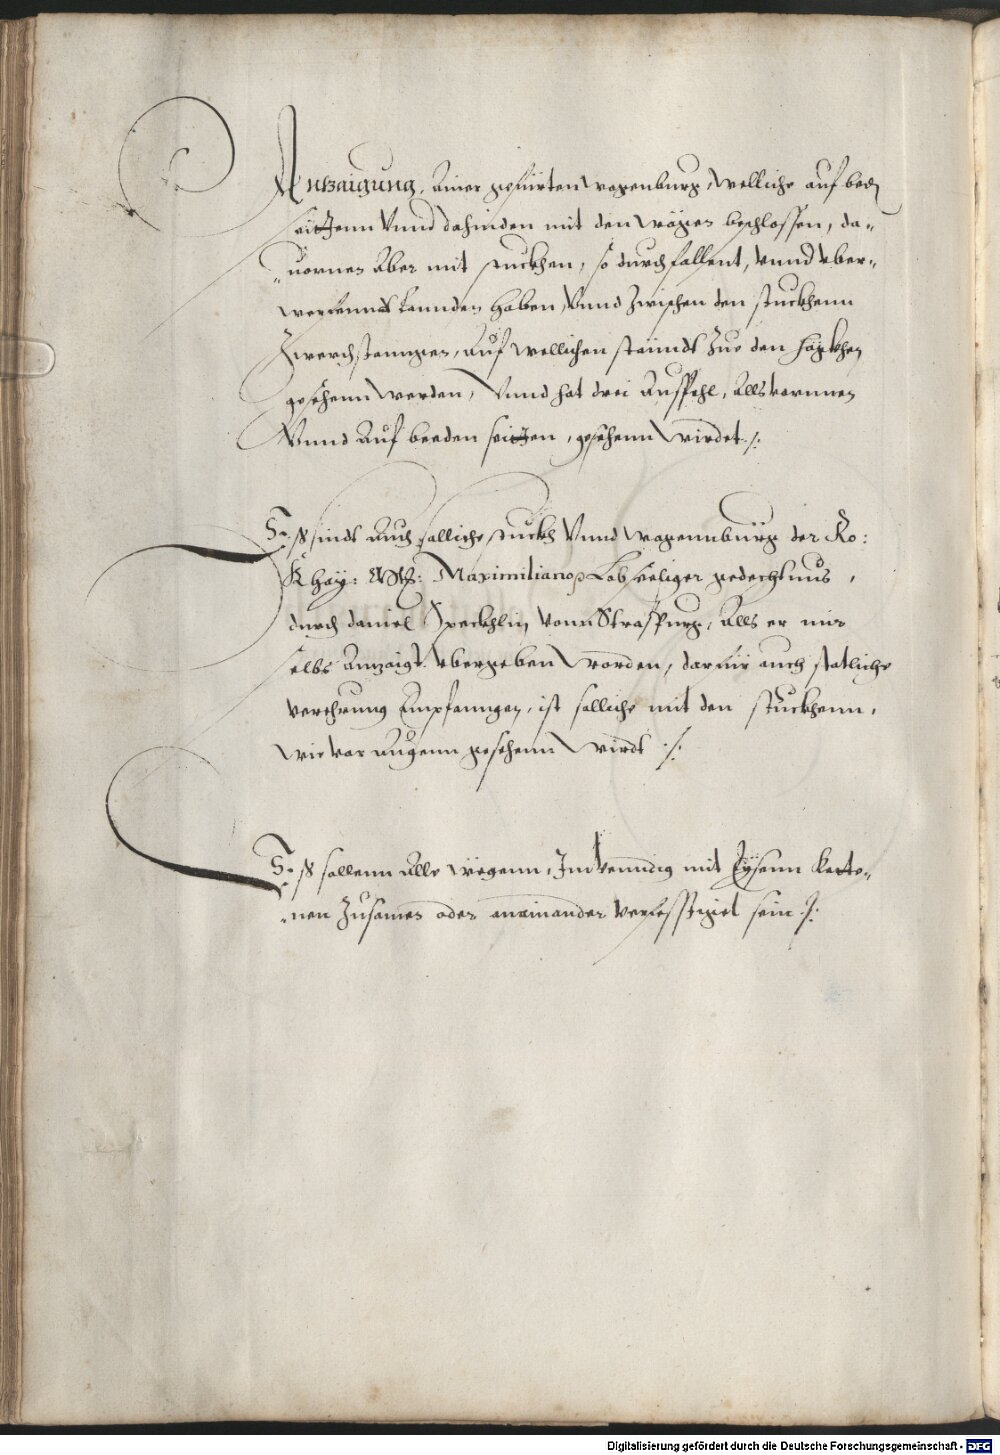 Anzaigung, Ainer gefüirten wagenburg, welliche auf bed
seittenn Vnnd dahinden mit den wägen beschlossen, da-
uornen Aber mit stuckhen, so durch fallent, vnnd vber-
werffennds Lannden haben, Vnnd zwischen den stuckhenn
Zwerchstanngen, Auf wellichen ständt Zue den hägkhen
gesehenn werden, Vnnd hat drei Ausfehl, Alls vornnen
Vnnd Auf beeden seitten, gesehenn wirdet ./.
Es sindt Auch solliche stuckh Vnnd wagennburg der Ro:
Khay: Mt: Maximiliano Lobseeliger gedechtnus,
durch daniel Speckhlin vonn Straspurg, Alls er mir
selbs Anzaigt vbergeben worden, darfür auch statliche
verehrung Empfanngen, ist solliche mit den stuckhenn,
wie vor augenn gesehenn wirdt ./.
Es sollenn Alle wägenn, Inwenndig mit Eysenn Kette-
nen Zusamen oder aneinander verfesstiget sein ./.
Digitalisierung gefördert durch die Deutsche Forschungsgemeinschaft - DFG